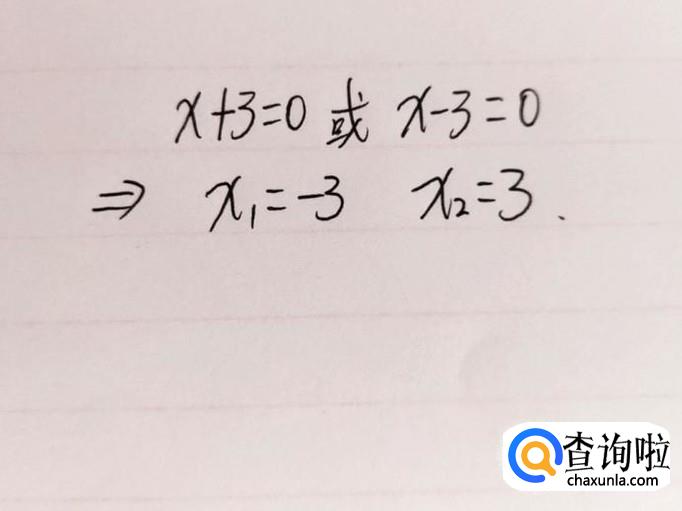 x+3=0 或 x-3=0
⇒ x₁=-3 x₂=3.
查询啦
chaxunla.com